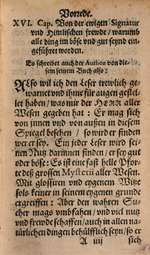 Vorrede.
XVI. Cap. Von der ewigen Signatur
und Heimlischen freude / warumb
alle ding im böse und gut seynd ein-
geführet worden.
Es schreibet auch der Author von die-
sem seinem Buch also:
Also wil ich den Leser trewlich ge-
warnet und ihme für augen gestel-
let haben / was mir der HERR aller
Wesen gegeben hat: Er mag sich
von innen und von aussen in diesem
Spiegel besehen / so wird er finden
wer er sey. Ein jeder Leser wird sei-
nen Nutz darinnen finden / er sey gut
oder böse: Es ist eine fast helle Pfor-
te deß grossen Mysterii aller Wesen.
Mit glossiren und eygenem Witze
sols keiner in seinem eygenen grunde
ergreiffen: Aber den wahren Su-
cher mags umbfahen / und viel nutz
und freude schaffen / auch in allen na-
türlichen dingen behülfflich seyn / so er
A iiij sich